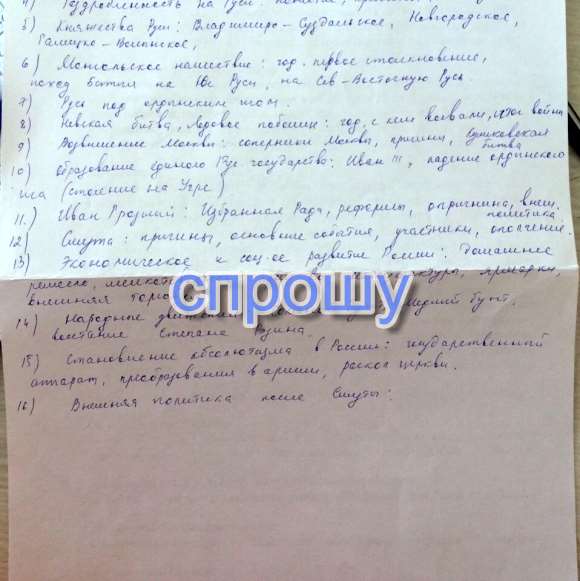 4) Раздробленность на Руси:
5) Княжества Руси: Владимиро-Суздальское, Новгородское,
Галицко-Волынское,
6) Монгольское нашествие: год, первое столкновение,
поход Батыя на Юг Руси, на Сев-Восточную Русь.
7) Русь под ордынским игом.
8) Невская битва, Ледовое побоище: год, с кем воевали, итог войны
9) Возвышение Москвы: соперники Москвы, причины, Куликовская
битва
10) Образование единого государства: Иван III, падение ордынского
ига (стояние на Угре)
11.) Иван Грозный: Избранная Рада, реформы, опричнина, внеш.
политика.
12) Смута: причины, основные события, участники, ополчение.
13) Экономическое и соц-ое развитие России: Домашнее
ремесло, ярмарки,
внешняя
14) Народные Медный бунт,
восстание Степана Разина.
спрошу
15) Становление абсолютизма в России: государственный
аппарат, преобразования в армии, раскол церкви.
16) Внешняя политика после Смуты: